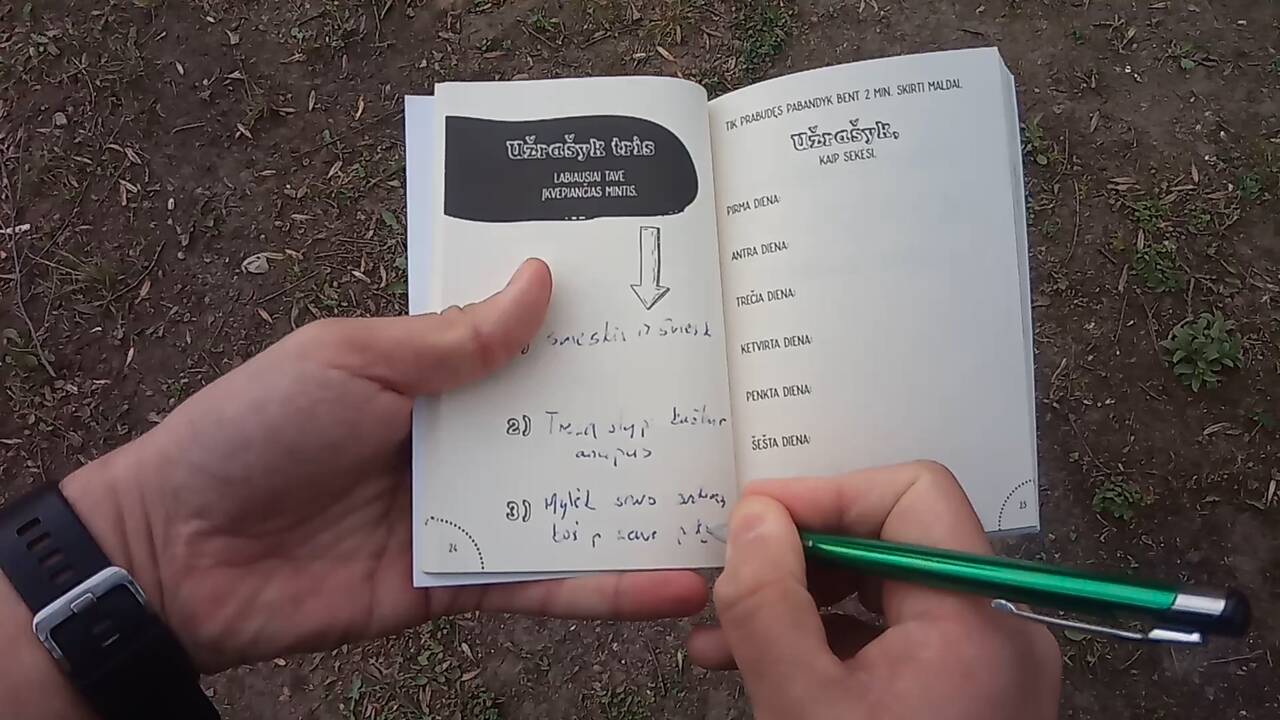 Užrašyk tris
LABIAUSIAI TAVE
ĮKVEPIANČIAS MINTIS.
2)
anapus
3) Mylėk savo
24
TIK PRABUDĘS PABANDYK BENT 2 MIN. SKIRTI MALDAI.
Užrašyk,
KAIP SEKĖSI.
PIRMA DIENA:
ANTRA DIENA:
TREČIA DIENA:
KETVIRTA DIENA:
PENKTA DIENA:
ŠEŠTA DIENA:
25